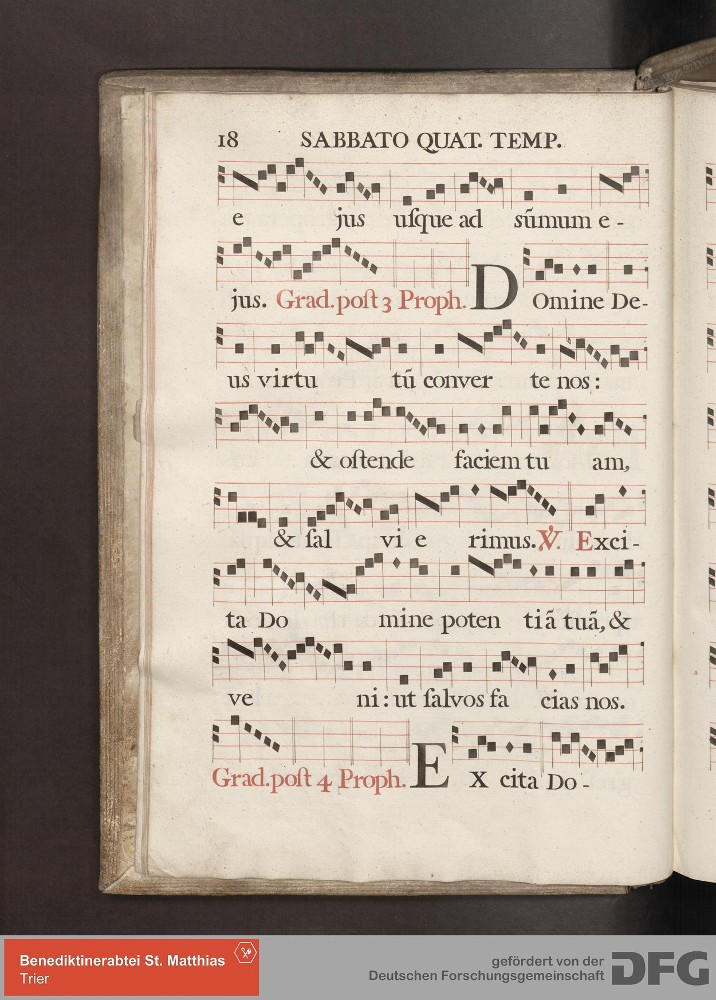 18 SABBATO QUAT. TEMP.
e jus uſque ad sũmum e-
jus. Grad. poſt 3 Proph. DOmine De-
us virtu tũ conver te nos:
& oſtende faciem tu am,
& ſal vi e rimus. ℣. Exci-
ta Do mine poten tiã tuã, &
ve ni: ut ſalvos fa cias nos.
Grad. poſt 4 Proph. EX cita Do-
Benediktinerabtei St. Matthias
Trier
gefördert von der
Deutschen Forschungsgemeinschaft DFG